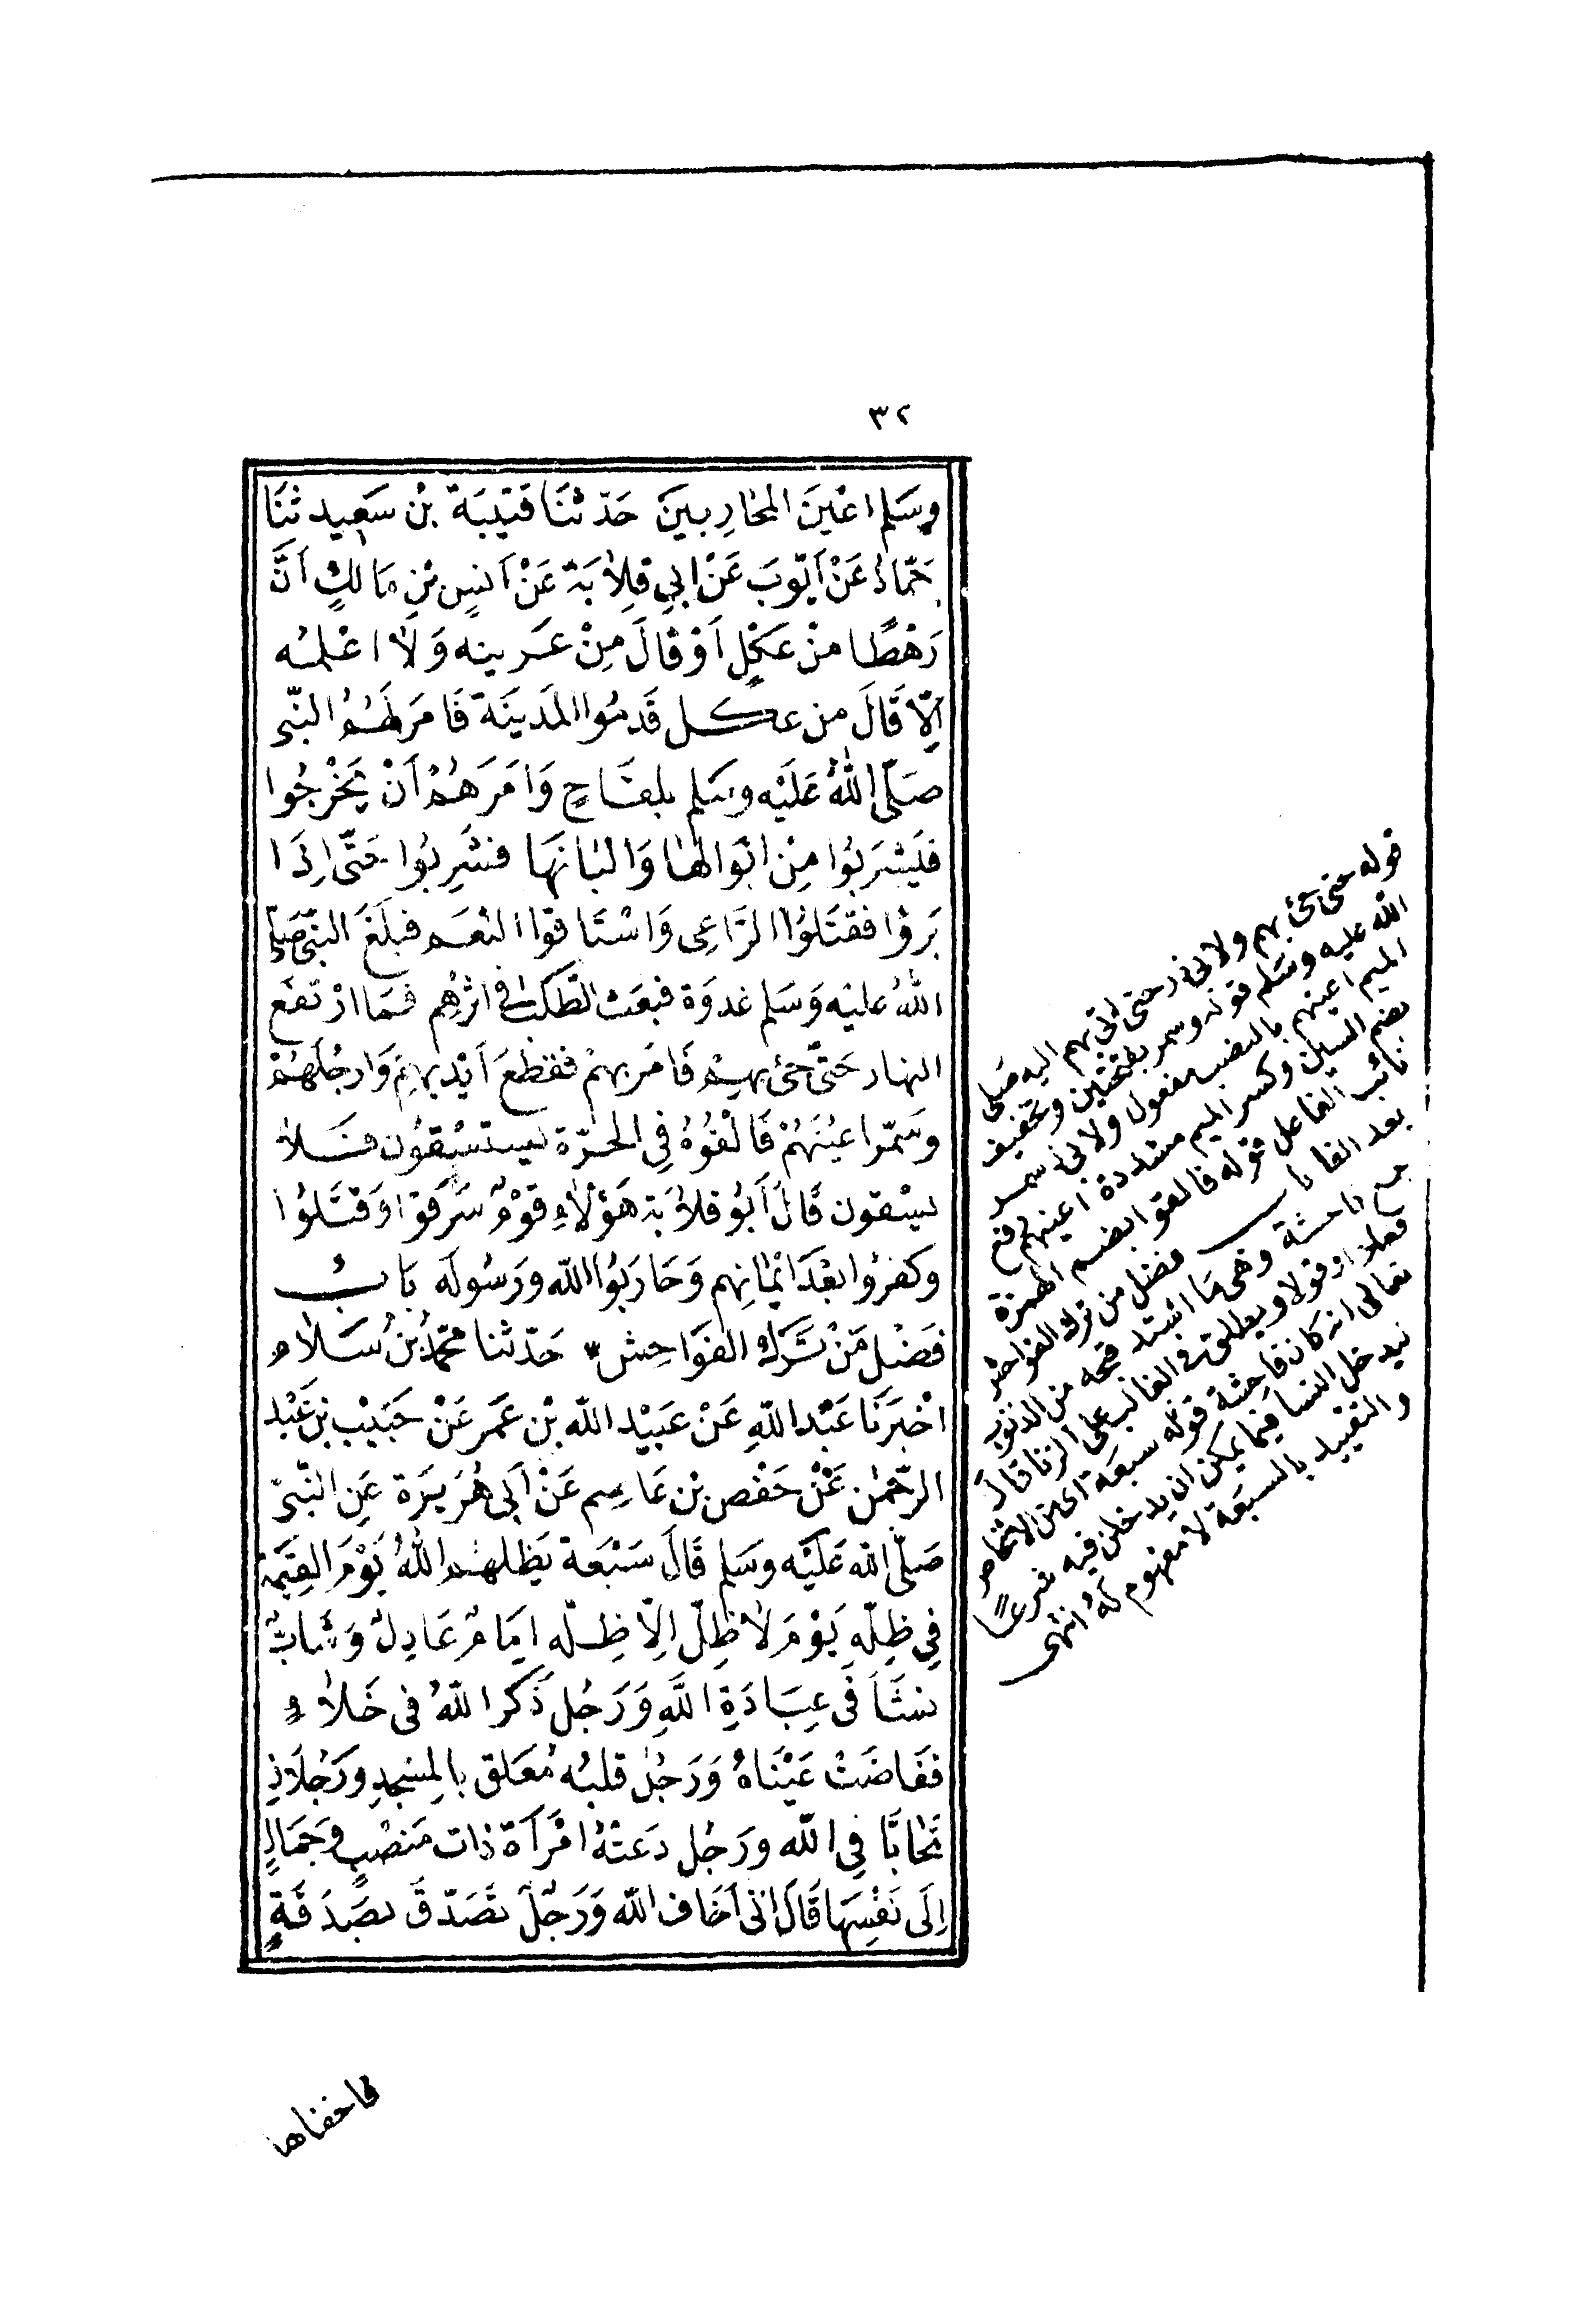 ٣٢
وسَلم اعْينَ المحَارِبينَ حَدّثنَا قتيبَة بْن سَعِيد ثنَا
حَمّادُ عَنْ أيّوبَ عَنْ ابي قِلابَة عَنْ أنسِ بْنِ مَالكٍ انَّ
رَهْطًا منْ عكلٍ اوْ قالَ مِنْ عرينه وَلا اعْلمُه
الّا قَالَ من عكل قَدمُوا المَدينَة فَامَر لهُمُ النبّى
صَلّى اللهُ عَلَيْه وسَلم بلقاحٍ وَامَرَهُمْ انْ يَخْرجُوا
فليَشرَبُوا مِنْ ابوَالهَا وَالبَانهَا فشَرِبُوا حَتّى اِذَا
بَرؤا فقتَلوُا الرَّاعِى وَاسْتَاقوا النعَم فبلَغَ النبّى صَلى
اللهُ عليْه وَسَلم غدوَة فبعَث الطّلبَ في اثرهِم فمَا ارْتفع
النهار حَتّى جئ بهِمْ فَامَر بهمْ فقطعَ أيْديَهُمْ وَارجُلهُمْ
وسَمّر اعيُنَهُمْ فَالْقوُهُ في الحَرّة يستسْقوُن فَلا
يسْقون قَالَ أبُو قلابَة هَؤلاءِ قوْمٌ سَرَقوا وَقتَلُوا
وكفرُوا بعْدَ ايْمَانِهم وَحَاربُوا الله ورَسُولَه بَابُ
فَضْل مَنْ تَرَكَ الفوَاحِش حَدّثنا محمّدُ بْنُ سَلام
اخْبرَنَا عَبْد اللهِ عَنْ عبَيْد الله بْن عمَر عَنْ خبَيْب بن عَبْد
الرّحمٰن عَنْ حَفْص بْن عَاصِم عَنْ أبى هُرَيرَة عَنِ النبّىّ
صَلّى الله عَليْه وسَلم قَالَ سَبْعَة يظلهُم اللهُ يَوْمَ القِيَمة
في ظِلّهِ يَوْمَ لا ظلّ الاّ ظِلّه امَامٌ عَادِلٌ وَشابٌّ
نشَأ فى عِبَادَةِ اللَّهِ وَرَجُل ذَكرَ اللهُ فى خَلاءٍ
ففَاضَتْ عَيْنَاهُ وَرَجُل قلبُه مُعَلق بالمسْجِدِ ورَجُلَانِ
تحَابَّا في الله ورَجُل دَعتْهُ امْرَأة ذات مَنصْبٍ وَجمَالٍ
اِلَى نَفْسِهَا قَالَ انّى أخَاف الله وَرَجُلٌ تصَدّقَ بصَدَقةٍ
فاخفاها
قوله حتى جئ بهم ولابى ذر حتى اتى بهم اليه صَلى
الله عليه وسَلم قوله وسمر بفتحتين وتخفيف
الميم اعينهم بالنصب مفعول ولابى ذر سمر
بضم السين وكسر الميم مشددة اعينهم رفع
نائب الفاعل قوله فالقوا بضم الهمزة
بعد الفا باب فضل من ترك الفواحش
جمع فاحشة وهى ما اشتد قبحه من الذنوب
فعلا او قولا ويطلق فى الغالب على الزنا قالَ
تعالى انه كان فاحِشة قوله سبعَة اى من الاشخاص
ليدخل النسا فيما يمكن ان يدخلن فيه شرعًا
والتقييد بالسبعَة لا مفهوم له انتهى